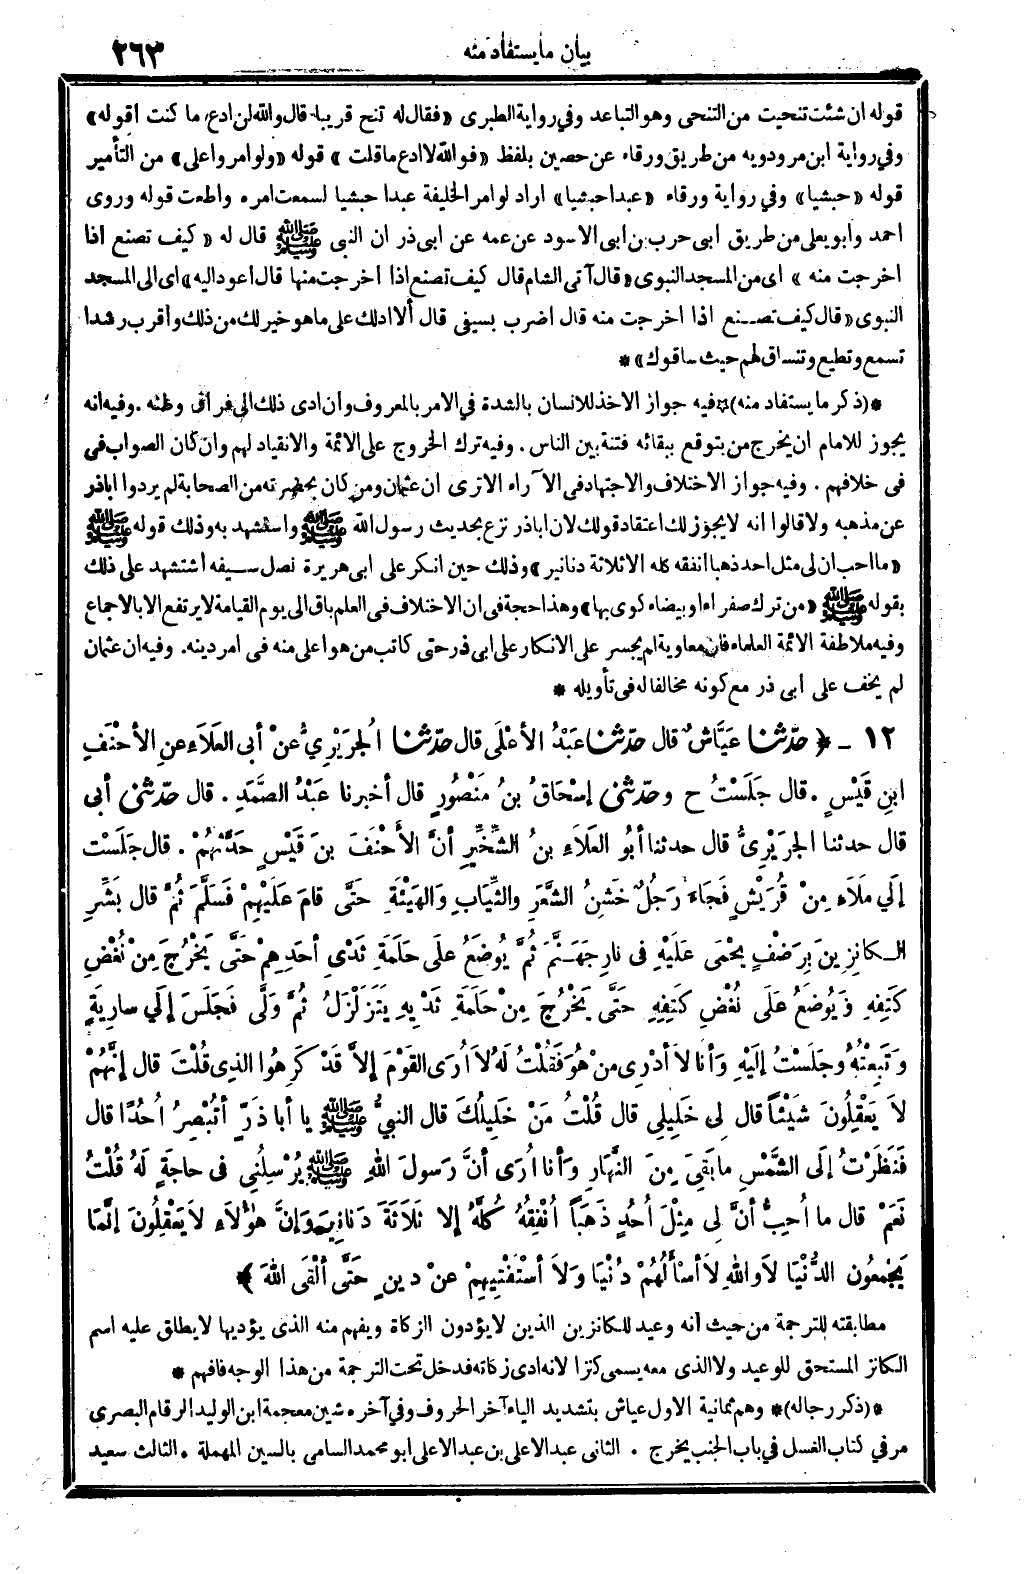 بيان ما يستفاد منه
٢٦٣
قوله ان شئت تنحيت من التنحى وهو التباعد وفي رواية الطبرى «فقال له تنح قريبا قال والله لن ادع ما كنت اقوله»
وفي رواية ابن مردويه من طريق ورقاء عن حصين بلفظ «فوالله لا ادع ما قلت» قوله «ولو امروا على» من التأمير
قوله «حبشيا» وفي رواية ورقاء «عبدا حبشيا» اراد لو امر الخليفة عبدا حبشيا لسمعت امره واطعت قوله وروى
احمد وأبو يعلى من طريق ابى حرب بن ابى الاسود عن عمه عن ابى ذر ان النبي ﷺ قال له «كيف تصنع اذا
اخرجت منه» اى من المسجد النبوى «قال آتى الشام قال كيف تصنع اذا اخرجت منها قال اعود اليه» اى الى المسجد
النبوى «قال كيف تصنع اذا اخرجت منه قال اضرب بسيفى قال ألا ادلك على ما هو خير لك من ذلك وأقرب رشدا
تسمع وتطيع وتنساق لهم حيث ساقوك» *
*(ذكر ما يستفاد منه)* فيه جواز الاخذ للانسان بالشدة في الامر بالمعروف وان ادى ذلك الى فراق وطنه. وفيه انه
يجوز للامام ان يخرج من يتوقع ببقائه فتنة بين الناس. وفيه ترك الخروج على الائمة والانقياد لهم وان كان الصواب فى
فى خلافهم. وفيه جواز الاختلاف والاجتهاد فى الآراء الا ترى ان عثمان ومن كان بحضرته من الصحابة لم يردوا اباذر
عن مذهبه ولا قالوا انه لا يجوز لك اعتقاد قولك لان اباذر نزع بحديث رسول الله ﷺ واستشهد به وذلك قوله ﷺ
«ما احب ان لى مثل احد ذهبا انفقه كله الا ثلاثة دنانير» وذلك حين انكر على ابى هريرة نصل سيفه أشتشهد على ذلك
بقوله ﷺ «من ترك صفراء او بيضاء كوى بها» وهذا حجة فى ان الاختلاف فى العلم باق الى يوم القيامة لا يرتفع الا بالاجماع
وفيه ملاطفة الائمة العلماء فان معاوية لم يجسر على الانكار على ابى ذر حتى كاتب من هو اعلى منه فى امر دينه. وفيه ان عثمان
لم يخف على ابى ذر مع كونه مخالفا له فى تأويله *
١٢ - ﴿ حدّثنا عَيَّاشٌ قال حدّثنا عَبْدُ الأعْلَى قال حدّثنا الجرَيْرِيُّ عنْ أبى العَلَاءِ عنِ الأحْنَفِ
ابنِ قَيْسٍ. قال جَلَسْتُ ح وحدّثنى إسْحَاقُ بنُ مَنْصُورٍ قال أخبرنا عَبْدُ الصَّمَدِ. قال حدّثنى أبى
قال حدثنا الجرَيْرِىُّ قال حدثنا أبُو العَلَاءِ بنُ الشِّخِّيرِ أنَّ الأحْنَفَ بنَ قَيْسٍ حَدَّثَهُمْ. قال جَلَسْت
إلَي مَلَاءٍ مِنْ قُرَيْشٍ فَجَاءَ رَجُلٌ خَشِنُ الشَّعَرِ والثِّيَابِ والهَيْئَةِ حَتَّى قامَ عَلَيْهِمْ فَسَلَّمَ ثُمَّ قال بَشِّرِ
الكانِزِينَ بِرَضْفٍ يحْمَى عَلَيْهِ فى نارِ جَهَنَّمَ ثُمَّ يُوضَعُ علَى حَلَمَةِ ثَدْىِ أحَدِهِمْ حَتَّى يَخْرُجَ مِنْ نُغْضِ
كَتِفِهِ وَيُوضَعُ عَلَى نُغْضِ كَتِفِهِ حَتَّى يَخْرُجَ مِنْ حَلَمَةِ ثَدْيِهِ يَتَزَلْزَلُ ثُمَّ وَلَّى فَجَلَسَ إلَي سارِيَةٍ
وَتَبِعْتُهُ وجَلَسْتُ إلَيْهِ وَأنا لاَ أدْرِى منْ هُوَ فَقُلْتُ لَهُ لاَ أُرَى القَوْمَ إلاَّ قَدْ كَرِهُوا الذِى قُلْتَ قال إنَّهُمْ
لاَ يَعْقِلُونَ شَيْئاً قال لِى خَلِيلِى قال قُلْتُ مَنْ خَلِيلُكَ قال النبيُّ ﷺ يا أبا ذَرٍّ أتُبْصِرُ أُحُدًا قال
فَنَظَرْتُ إلَى الشَّمْسِ ما بَقِىَ مِنَ النَّهَارِ وَأنا أُرَى أنَّ رَسولَ اللهِ ﷺ يُرْسِلُنِي فى حاجَةٍ لَهُ قُلْتُ
نَعَمْ قال ما أُحِبُّ أنَّ لِى مِثْلَ أُحُدٍ ذَهَبًا أُنْفِقُهُ كُلَّهُ إلا ثَلَاثَةَ دَنانِيرَ وَإنَّ هؤُلاَءِ لاَ يَعْقِلُونَ إنَّمَا
يَجْمَعُون الدُّنْيَا لاَ واللهِ لاَ أسْأَلُهُمْ دُنْيَا وَلاَ أسْتَفْتِيهِمْ عنْ دينٍ حَتَّى ألْقَى اللهَ ﴾ *
مطابقته للترجمة من حيث أنه وعيد للكانزين الذين لا يؤدون الزكاة ويفهم منه الذى يؤديها لا يطلق عليه اسم
الكانز المستحق للوعيد ولا الذى معه يسمى كنزا لانه ادى زكاته فدخل تحت الترجمة من هذا الوجه فافهم *
*(ذكر رجاله)* وهم ثمانية الاول عياش بتشديد الياء آخر الحروف وفي آخره شين معجمة ابن الوليد الرقام البصرى
مر في كتاب الغسل في باب الجنب يخرج. الثانى عبد الاعلى بن عبد الاعلى ابو محمد السامى بالسين المهملة. الثالث سعيد